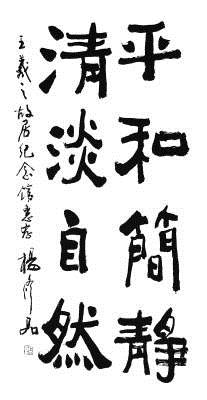 平和簡靜
清淡自然
王羲之故居纪念馆惠存
楊